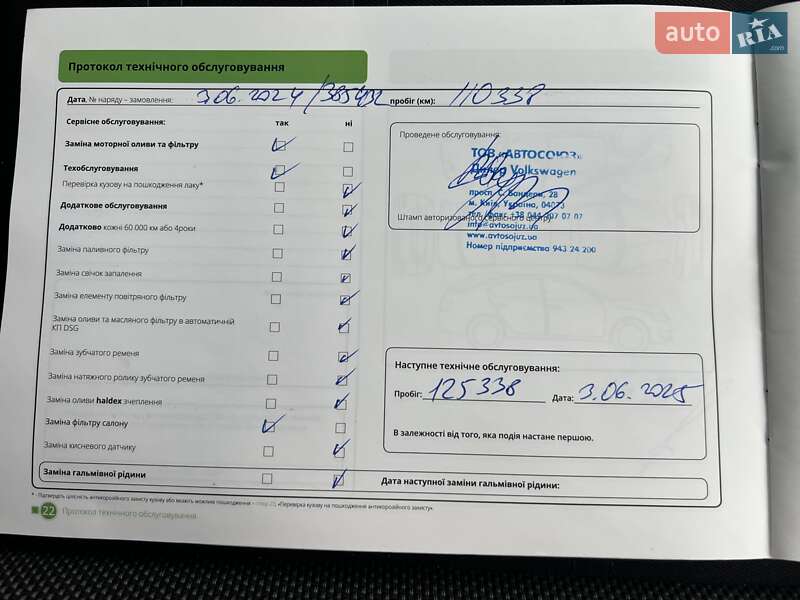 auto RIA .com
Протокол технічного обслуговування
Дата, № наряду – замовлення: 3.06.2024 / 385402 пробіг (км): 110338
Сервісне обслуговування: так ні
Заміна моторної оливи та фільтру
Техобслуговування
Перевірка кузову на пошкодження лаку*
Додаткове обслуговування
Додатково кожні 60.000 км або 4роки
Заміна паливного фільтру
Заміна свічок запалення
Заміна елементу повітряного фільтру
Заміна оливи та масляного фільтру в автоматичній
КП DSG
Заміна зубчатого ременя
Заміна натяжного ролику зубчатого ременя
Заміна оливи haldex зчеплення
Заміна фільтру салону
Заміна кисневого датчику
Заміна гальмівної рідини
Проведене обслуговування:
ТОВ «АВТОСОЮЗ»
Дилер Volkswagen
просп. С. Бандери, 28
м. Київ, Україна, 04073
тел./факс +38 044 207 07 07
Штамп авторизованого сервісного центру
info@avtosojuz.ua
www.avtosojuz.ua
Номер підприємства 943 24 200
Наступне технічне обслуговування:
Пробіг: 125338 Дата: 3.06.2025
В залежності від того, яка подія настане першою.
Дата наступної заміни гальмівної рідини:
* - Підтвердіть цілісність антикорозійного захисту кузову або вкажіть можливі пошкодження – «Перевірка кузову на пошкодження антикорозійного захисту».
22 Протокол технічного обслуговування